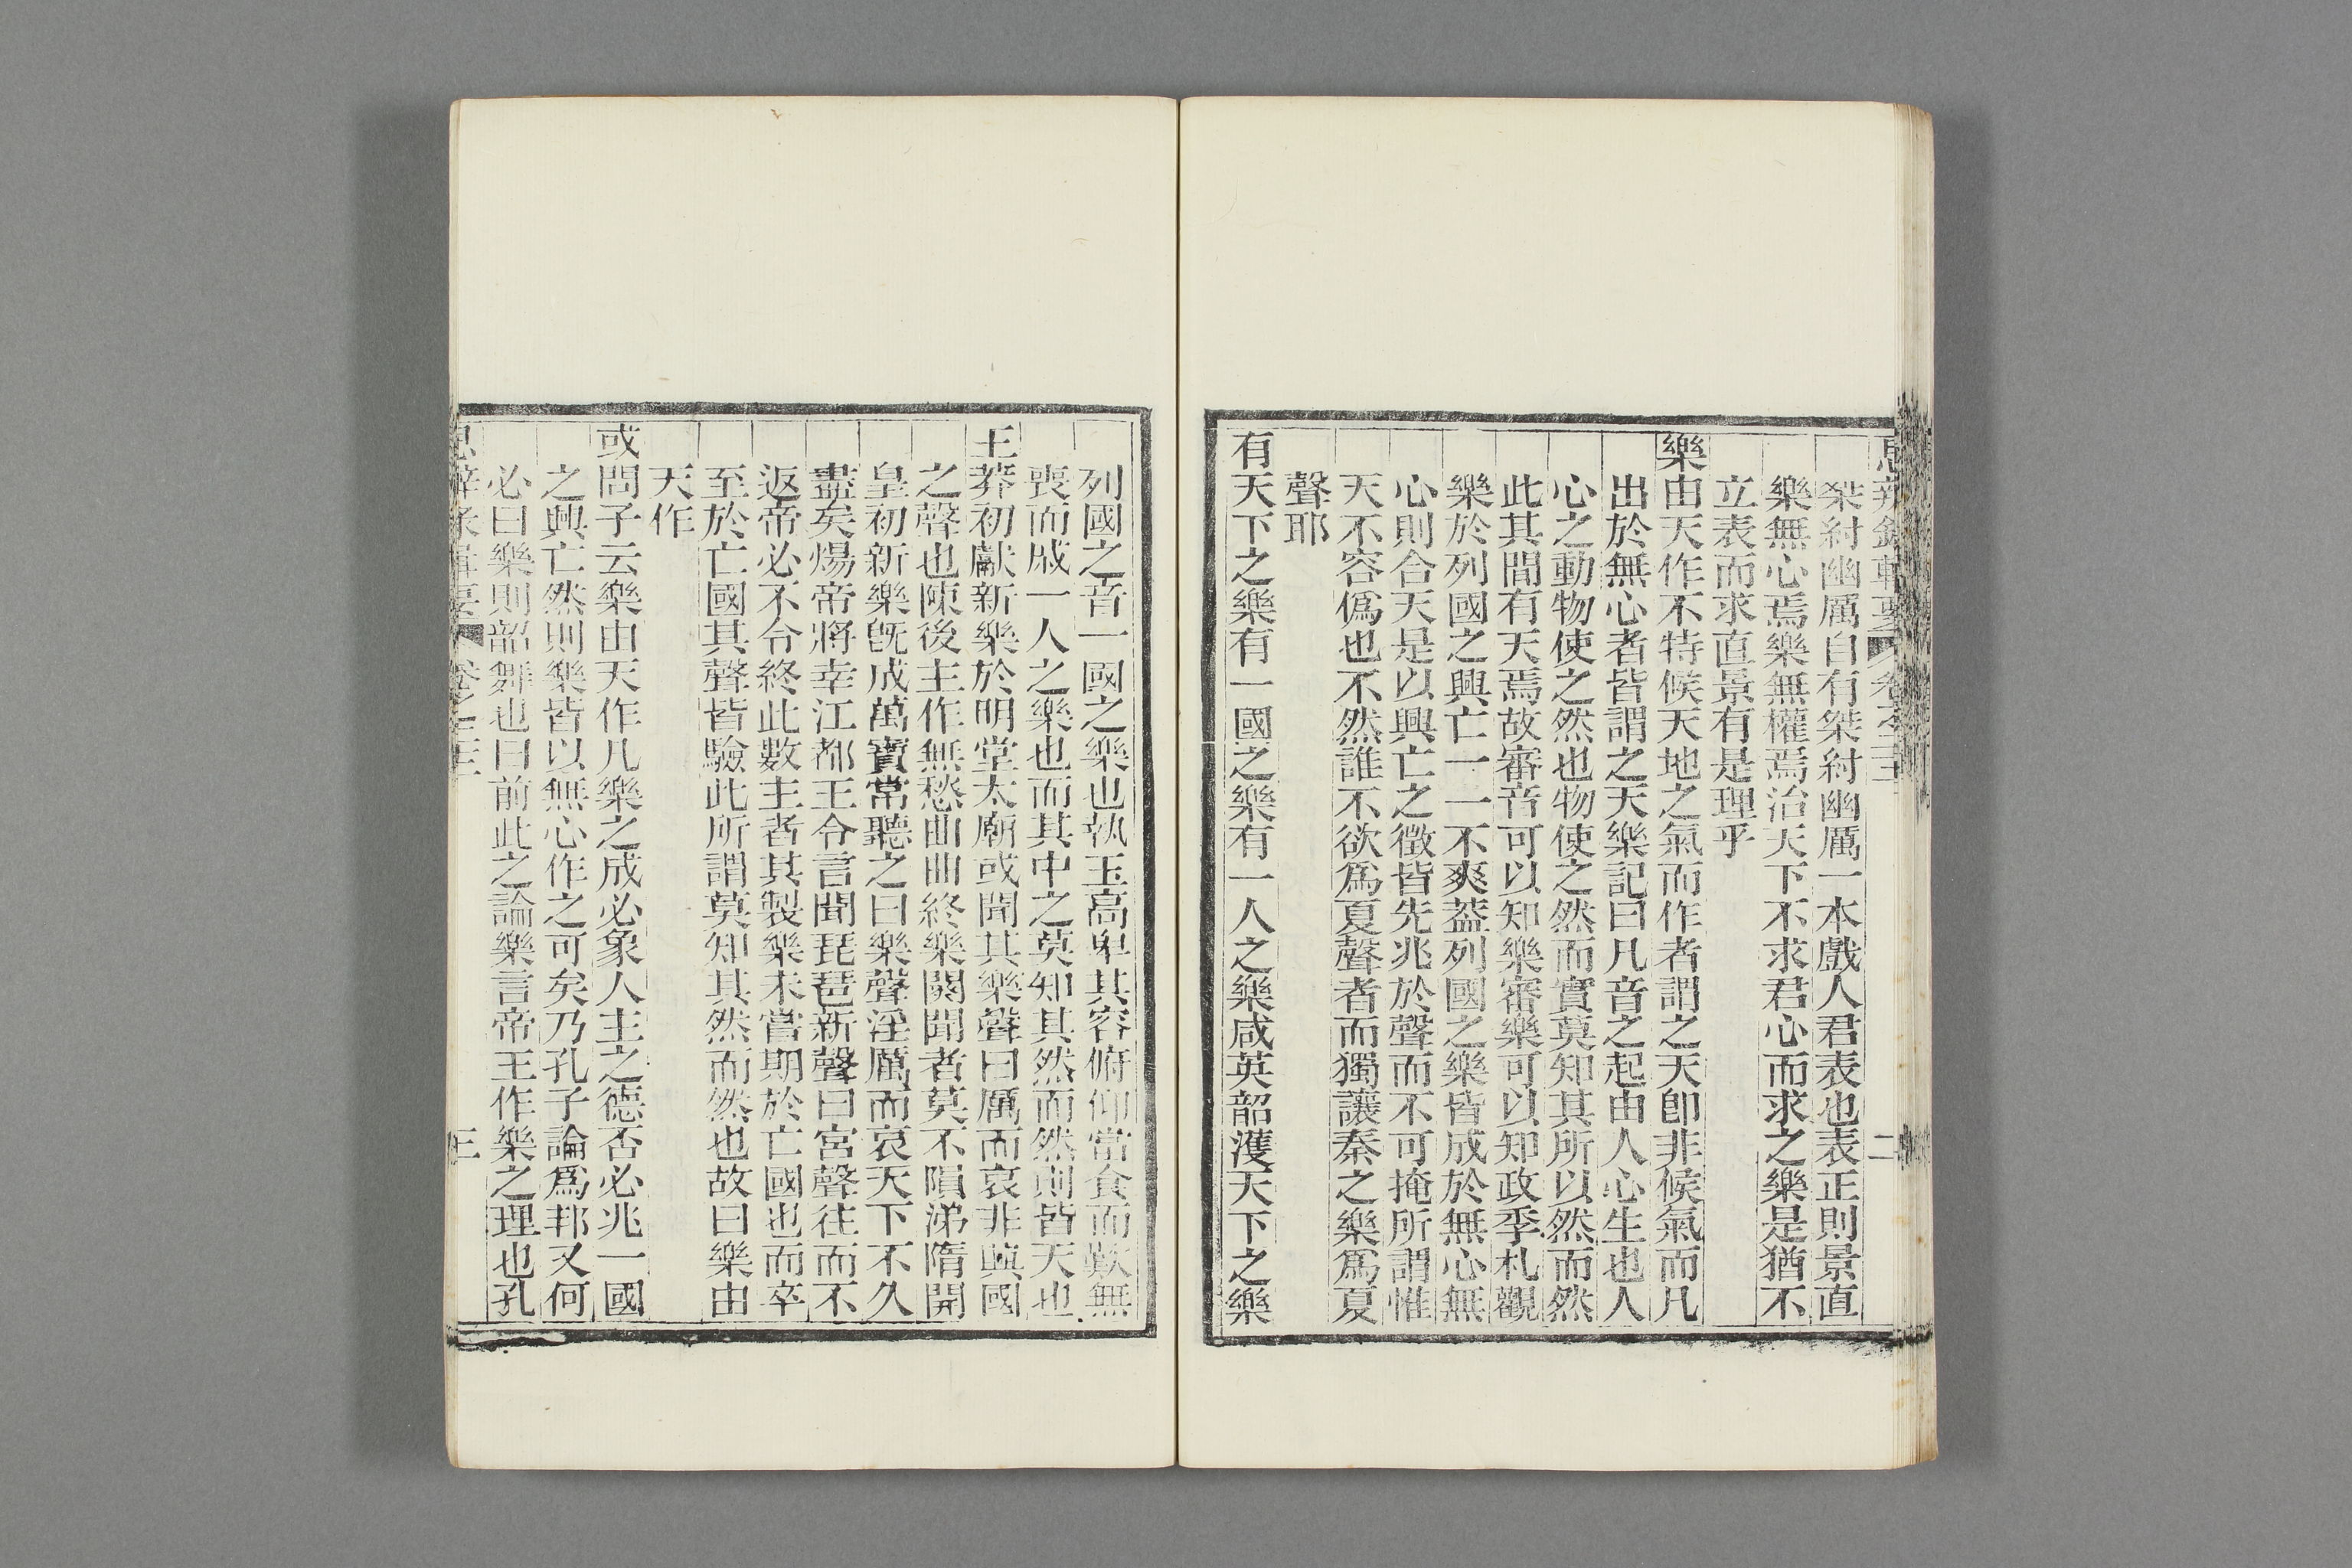 思辨錄輯要 卷之三 二
桀紂幽厲自有桀紂幽厲一本戲人君表也表正則景直
樂無心焉樂無權焉治天下不求君心而求之樂是猶不
立表而求直景有是理乎
樂由天作不特候天地之氣而作者謂之天卽非候氣而凡
出於無心者皆謂之天樂記曰凡音之起由人心生也人
心之動物使之然也物使之然而實莫知其所以然而然
此其間有天焉故審音可以知樂審樂可以知政季札觀
樂於列國之興亡一一不爽葢列國之樂皆成於無心無
心則合天是以興亡之徵皆先兆於聲而不可掩所謂惟
天不容僞也不然誰不欲爲夏聲者而獨讓秦之樂爲夏
聲耶
有天下之樂有一國之樂有一人之樂咸英韶濩天下之樂
列國之音一國之樂也執玉高卑其容俯仰當食而歎無
喪而戚一人之樂也而其中之莫知其然而然則皆天也
王莽初獻新樂於明堂太廟或聞其樂聲曰厲而哀非興國
之聲也陳後主作無愁曲曲終樂闋聞者莫不隕涕隋開
皇初新樂旣成萬寶常聽之曰樂聲淫厲而哀天下不久
盡矣煬帝將幸江都王令言聞琵琶新聲曰宮聲往而不
返帝必不令終此數主者其製樂未嘗期於亡國也而卒
至於亡國其聲皆驗此所謂莫知其然而然也故曰樂由
天作
或問子云樂由天作凡樂之成必象人主之德否必兆一國
之興亡然則樂皆以無心作之可矣乃孔子論爲邦又何
必曰樂則韶舞也曰前此之論樂言帝王作樂之理也孔
思辨錄輯要 卷之三 三